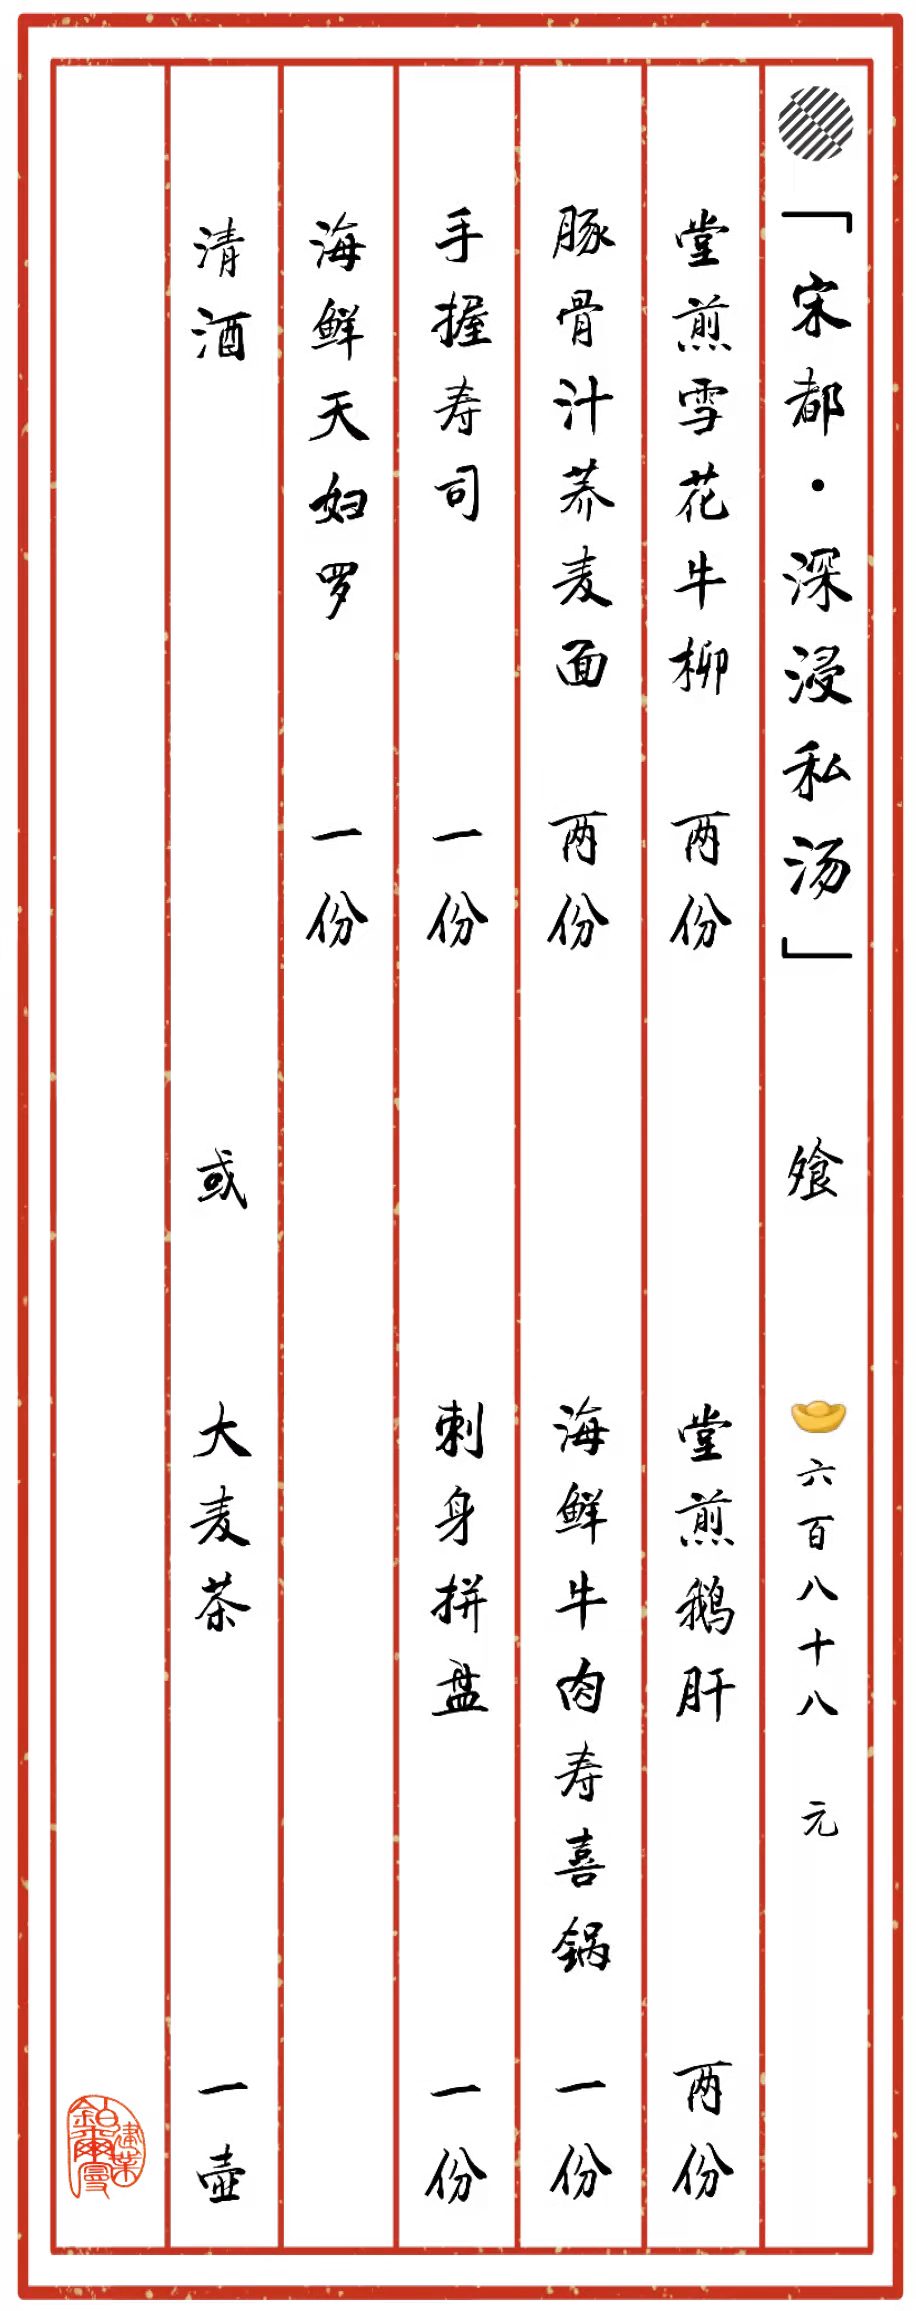 「宋都·深浸私汤」 飧 六百八十八 元
堂煎雪花牛柳 两份 堂煎鹅肝 两份
豚骨汁荞麦面 两份 海鲜牛肉寿喜锅 一份
手握寿司 一份 刺身拼盘 一份
海鲜天妇罗 一份
清酒 或 大麦茶 一壶
建业铂尔曼